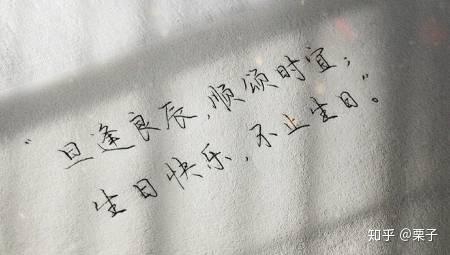 “旦逢良辰，顺颂时宜；
生日快乐，不止生日”。
知乎 @栗子